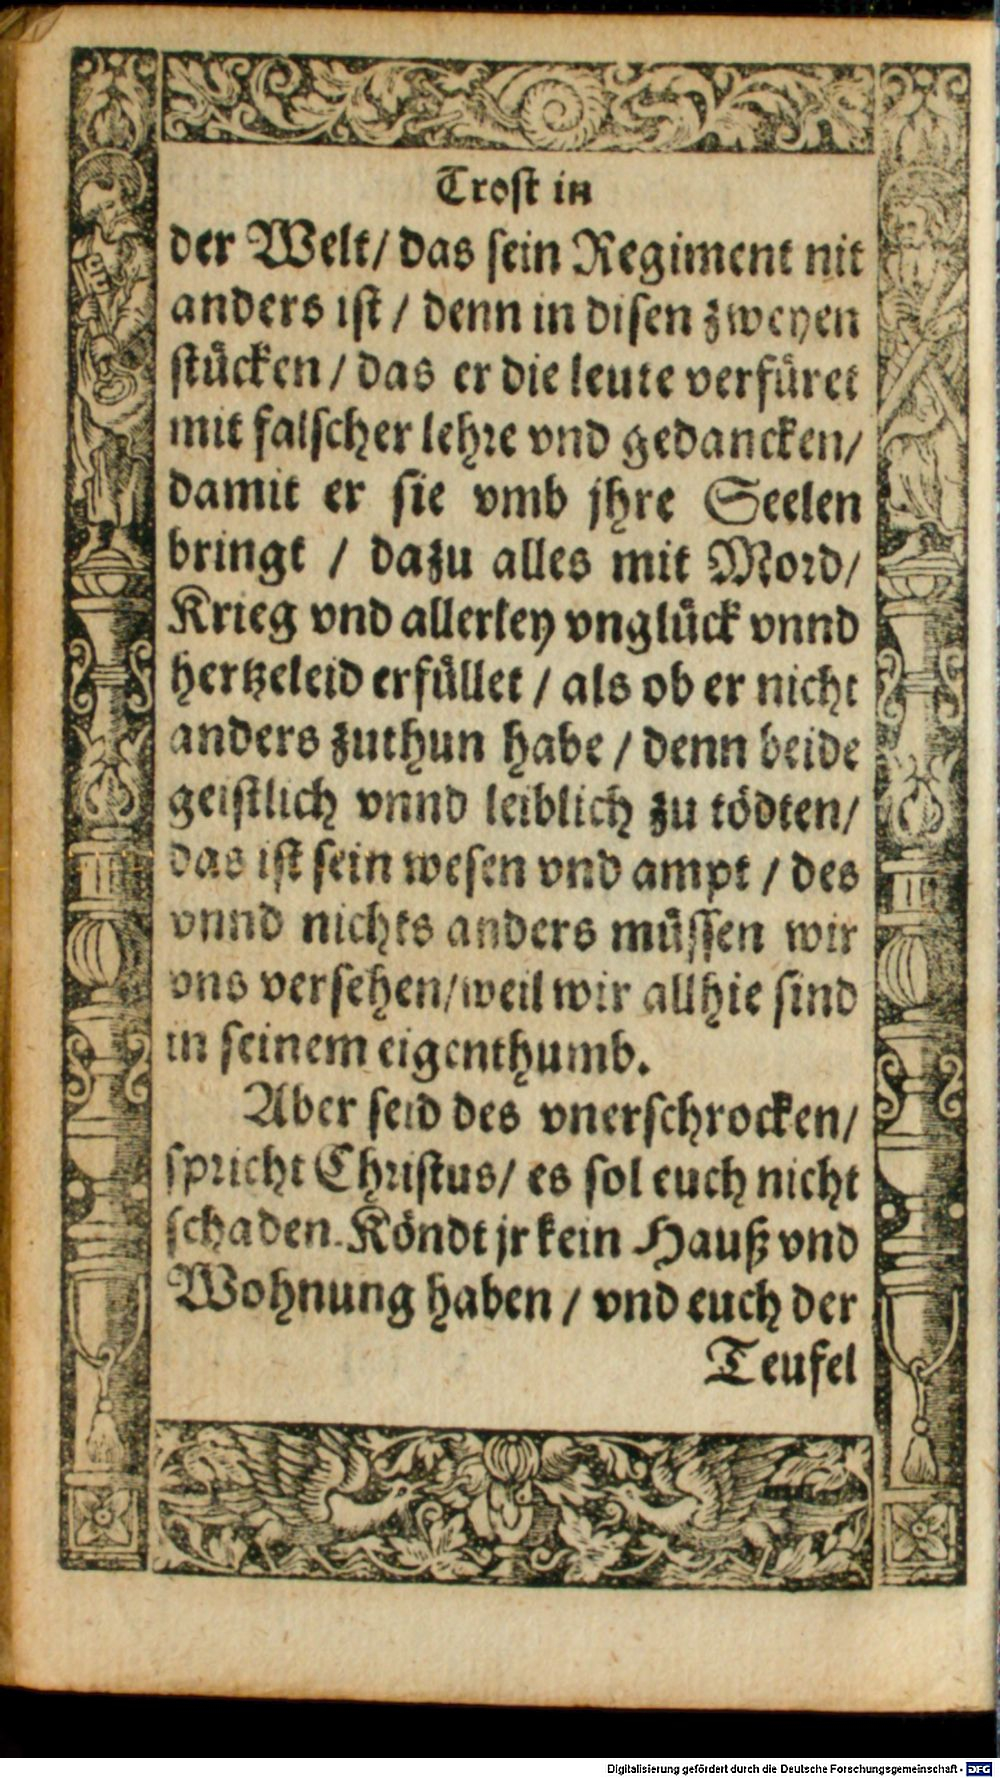 Trost in
der Welt/ das sein Regiment nit
anders ist / denn in disen zweyen
stücken / das er die leute verfüret
mit falscher lehre vnd gedancken/
damit er sie vmb jhre Seelen
bringt / dazu alles mit Mord/
Krieg vnd allerley vnglück vnnd
hertzeleid erfüllet / als ob er nicht
anders zuthun habe / denn beide
geistlich vnnd leiblich zu tödten/
das ist sein wesen vnd ampt / des
vnnd nichts anders müssen wir
vns versehen/weil wir allhie sind
in seinem eigenthumb.
Aber seid des vnerschrocken/
spricht Christus/ es sol euch nicht
schaden. Köndt jr kein Hauß vnd
Wohnung haben / vnd euch der
Teufel
Digitalisierung gefördert durch die Deutsche Forschungsgemeinschaft - DFG